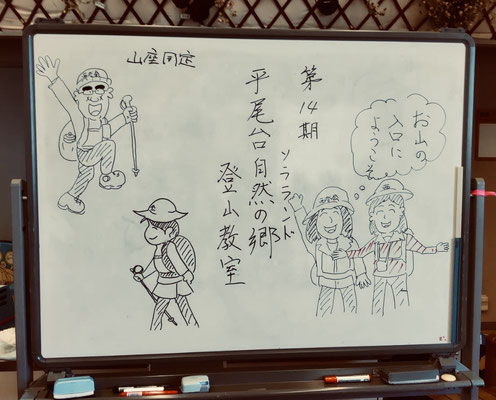 山座同定
第14期
ソラランド
平尾台自然の郷
登山教室
お山の
入口に
ようこそ